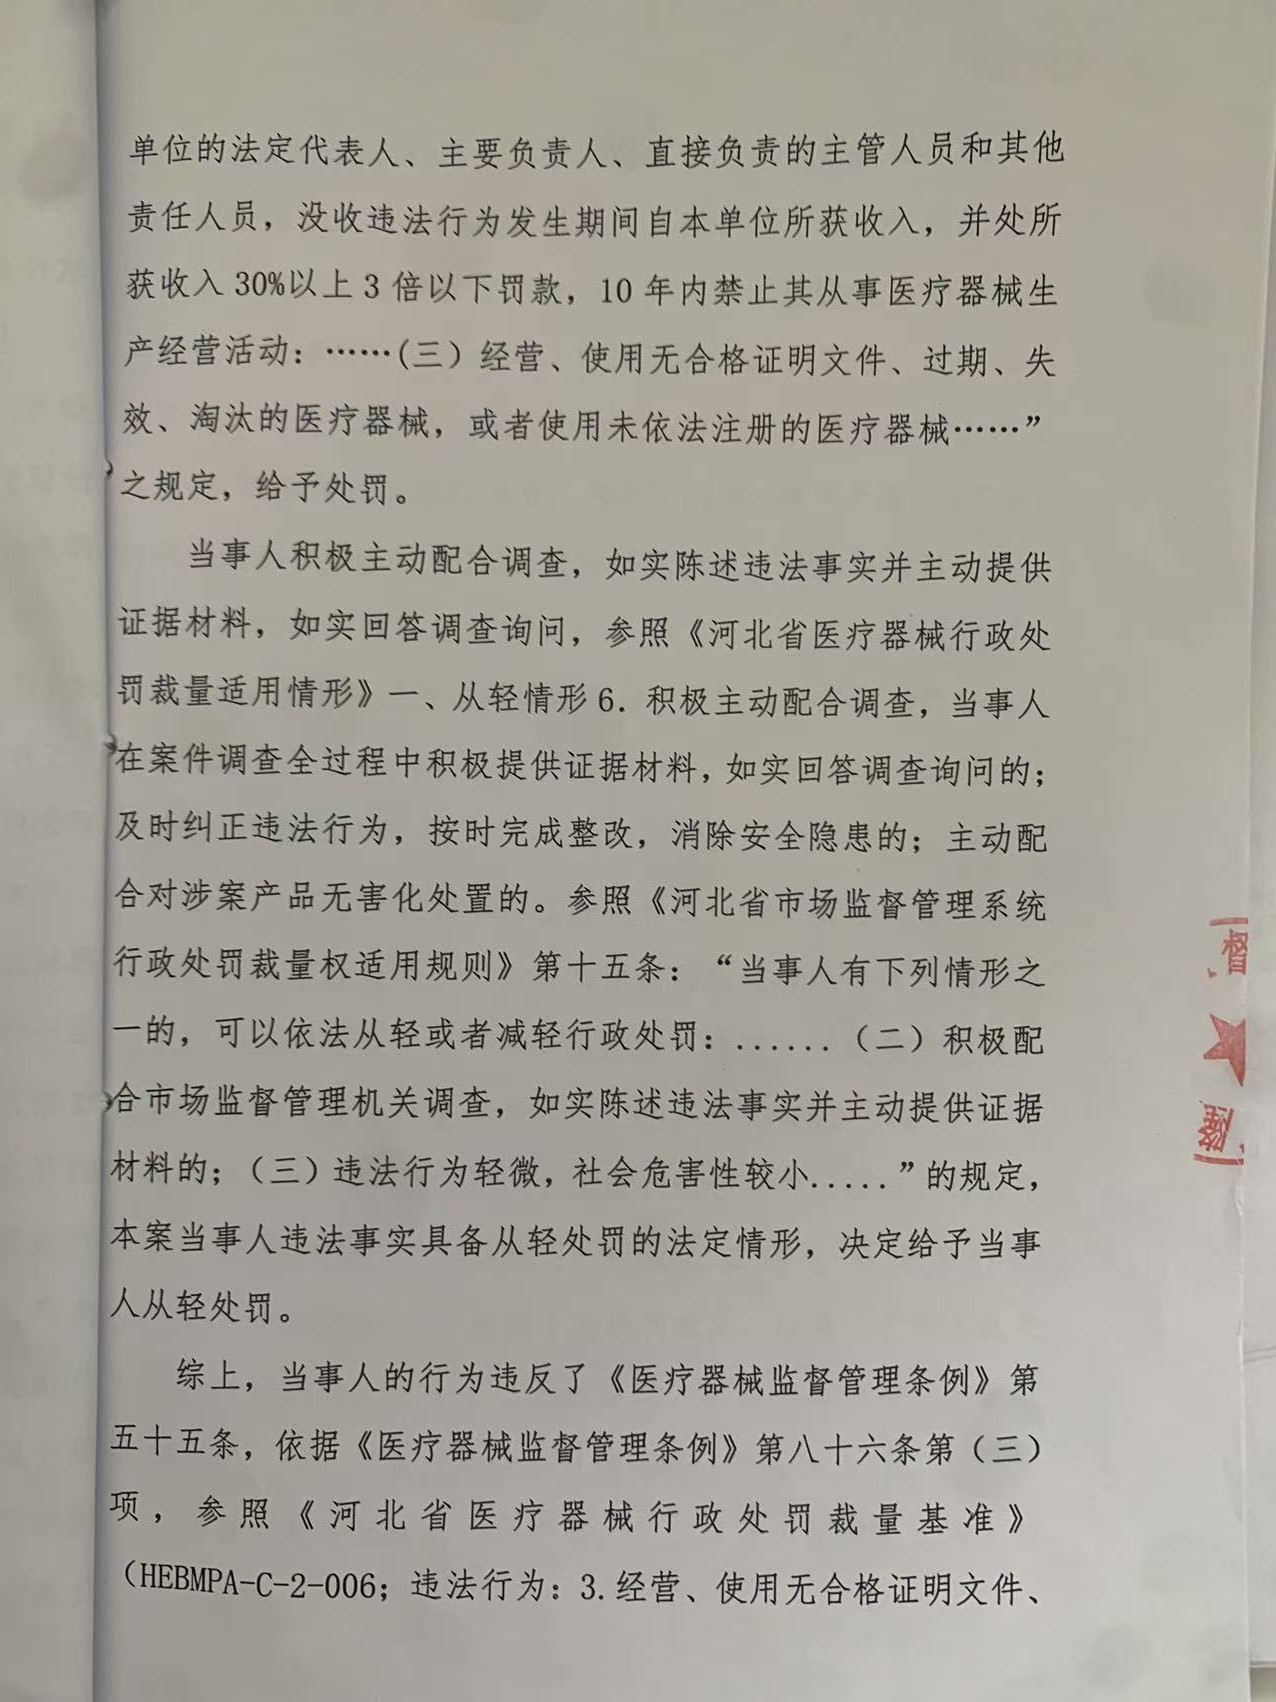 单位的法定代表人、主要负责人、直接负责的主管人员和其他
责任人员，没收违法行为发生期间自本单位所获收入，并处所
获收入30%以上3倍以下罚款，10年内禁止其从事医疗器械生
产经营活动：……(三）经营、使用无合格证明文件、过期、失
效、淘汰的医疗器械，或者使用未依法注册的医疗器械……”
之规定，给予处罚。
当事人积极主动配合调查，如实陈述违法事实并主动提供
证据材料，如实回答调查询问，参照《河北省医疗器械行政处
罚裁量适用情形》一、从轻情形6．积极主动配合调查，当事人
在案件调查全过程中积极提供证据材料，如实回答调查询问的；
及时纠正违法行为，按时完成整改，消除安全隐患的；主动配
合对涉案产品无害化处置的。参照《河北省市场监督管理系统
行政处罚裁量权适用规则》第十五条：“当事人有下列情形之
一的，可以依法从轻或者减轻行政处罚：......（二）积极配
合市场监督管理机关调查，如实陈述违法事实并主动提供证据
材料的；（三）违法行为轻微，社会危害性较小.....”的规定，
本案当事人违法事实具备从轻处罚的法定情形，决定给予当事
人从轻处罚。
综上，当事人的行为违反了《医疗器械监督管理条例》第
五十五条，依据《医疗器械监督管理条例》第八十六条第（三）
项，参照《河北省医疗器械行政处罚裁量基准》
（HEBMPA-C-2-006；违法行为：3.经营、使用无合格证明文件、
督
隆